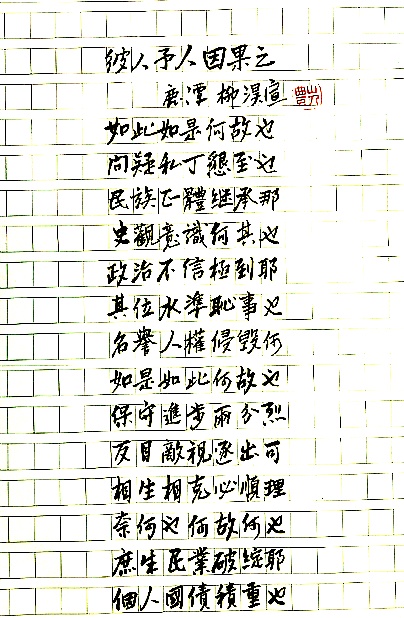 彼人予人因果之
鹿潭 柳淏宣
如此如是何故也
問疑私丁懇至也
民族正體継承那
史觀意識何其也
政治不信極到耶
其位水準恥事也
名譽人權侵毀何
如是如此何故也
保守進步兩分烈
反目敵視逐出可
相生相克必順理
柰何也何故何也
庶生民業破綻耶
個人國債積重也